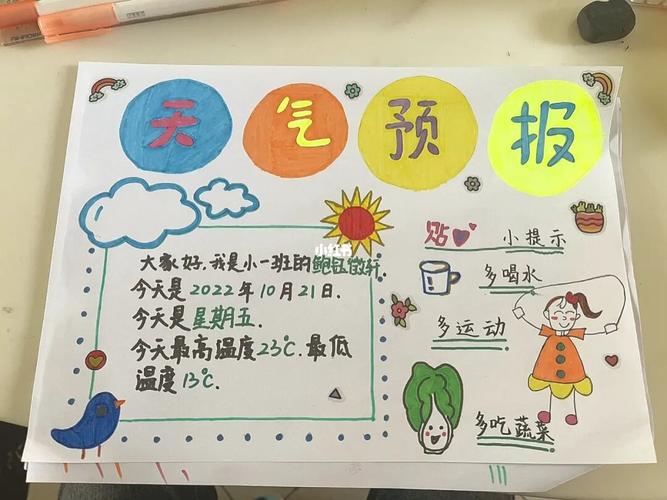 天气预报
大家好,我是小一班的鲍钰傲轩.
今天是2022年10月21日.
今天是星期五.
今天最高温度23℃.最低
温度13℃.
小红书
贴 小提示
多喝水
多运动
多吃蔬菜